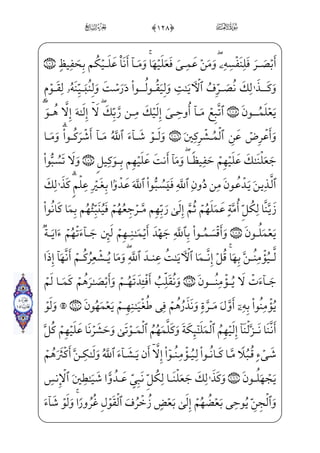 سُورَةُ الأَنْعَام ﴿١٢٨﴾ الجُزْءُ السَّابِعُ
أَبْصَرَ فَلِنَفْسِهِۦ ۖ وَمَنْ عَمِىَ فَعَلَيْهَا ۚ وَمَآ أَنَا۠ عَلَيْكُم بِحَفِيظٍ ﴿١٠٤﴾
وَكَذَٰلِكَ نُصَرِّفُ ٱلْـَٔايَـٰتِ وَلِيَقُولُوا۟ دَرَسْتَ وَلِنُبَيِّنَهُۥ لِقَوْمٍ
يَعْلَمُونَ ﴿١٠٥﴾ ٱتَّبِعْ مَآ أُوحِىَ إِلَيْكَ مِن رَّبِّكَ ۖ لَآ إِلَـٰهَ إِلَّا هُوَ ۖ
وَأَعْرِضْ عَنِ ٱلْمُشْرِكِينَ ﴿١٠٦﴾ وَلَوْ شَآءَ ٱللَّهُ مَآ أَشْرَكُوا۟ ۗ وَمَا
جَعَلْنَـٰكَ عَلَيْهِمْ حَفِيظًا ۖ وَمَآ أَنتَ عَلَيْهِم بِوَكِيلٍ ﴿١٠٧﴾ وَلَا تَسُبُّوا۟
ٱلَّذِينَ يَدْعُونَ مِن دُونِ ٱللَّهِ فَيَسُبُّوا۟ ٱللَّهَ عَدْوًۢا بِغَيْرِ عِلْمٍ ۗ كَذَٰلِكَ
زَيَّنَّا لِكُلِّ أُمَّةٍ عَمَلَهُمْ ثُمَّ إِلَىٰ رَبِّهِم مَّرْجِعُهُمْ فَيُنَبِّئُهُم بِمَا كَانُوا۟
يَعْمَلُونَ ﴿١٠٨﴾ وَأَقْسَمُوا۟ بِٱللَّهِ جَهْدَ أَيْمَـٰنِهِمْ لَئِن جَآءَتْهُمْ ءَايَةٌ
لَّيُؤْمِنُنَّ بِهَا ۚ قُلْ إِنَّمَا ٱلْـَٔايَـٰتُ عِندَ ٱللَّهِ ۖ وَمَا يُشْعِرُكُمْ أَنَّهَآ إِذَا
جَآءَتْ لَا يُؤْمِنُونَ ﴿١٠٩﴾ وَنُقَلِّبُ أَفْـِٔدَتَهُمْ وَأَبْصَـٰرَهُمْ كَمَا لَمْ
يُؤْمِنُوا۟ بِهِۦٓ أَوَّلَ مَرَّةٍ وَنَذَرُهُمْ فِى طُغْيَـٰنِهِمْ يَعْمَهُونَ ﴿١١٠﴾ ۞ وَلَوْ
أَنَّنَا نَزَّلْنَآ إِلَيْهِمُ ٱلْمَلَـٰٓئِكَةَ وَكَلَّمَهُمُ ٱلْمَوْتَىٰ وَحَشَرْنَا عَلَيْهِمْ كُلَّ
شَىْءٍ قُبُلًا مَّا كَانُوا۟ لِيُؤْمِنُوٓا۟ إِلَّآ أَن يَشَآءَ ٱللَّهُ وَلَـٰكِنَّ أَكْثَرَهُمْ
يَجْهَلُونَ ﴿١١١﴾ وَكَذَٰلِكَ جَعَلْنَا لِكُلِّ نَبِىٍّ عَدُوًّا شَيَـٰطِينَ ٱلْإِنسِ
وَٱلْجِنِّ يُوحِى بَعْضُهُمْ إِلَىٰ بَعْضٍ زُخْرُفَ ٱلْقَوْلِ غُرُورًا ۚ وَلَوْ شَآءَ